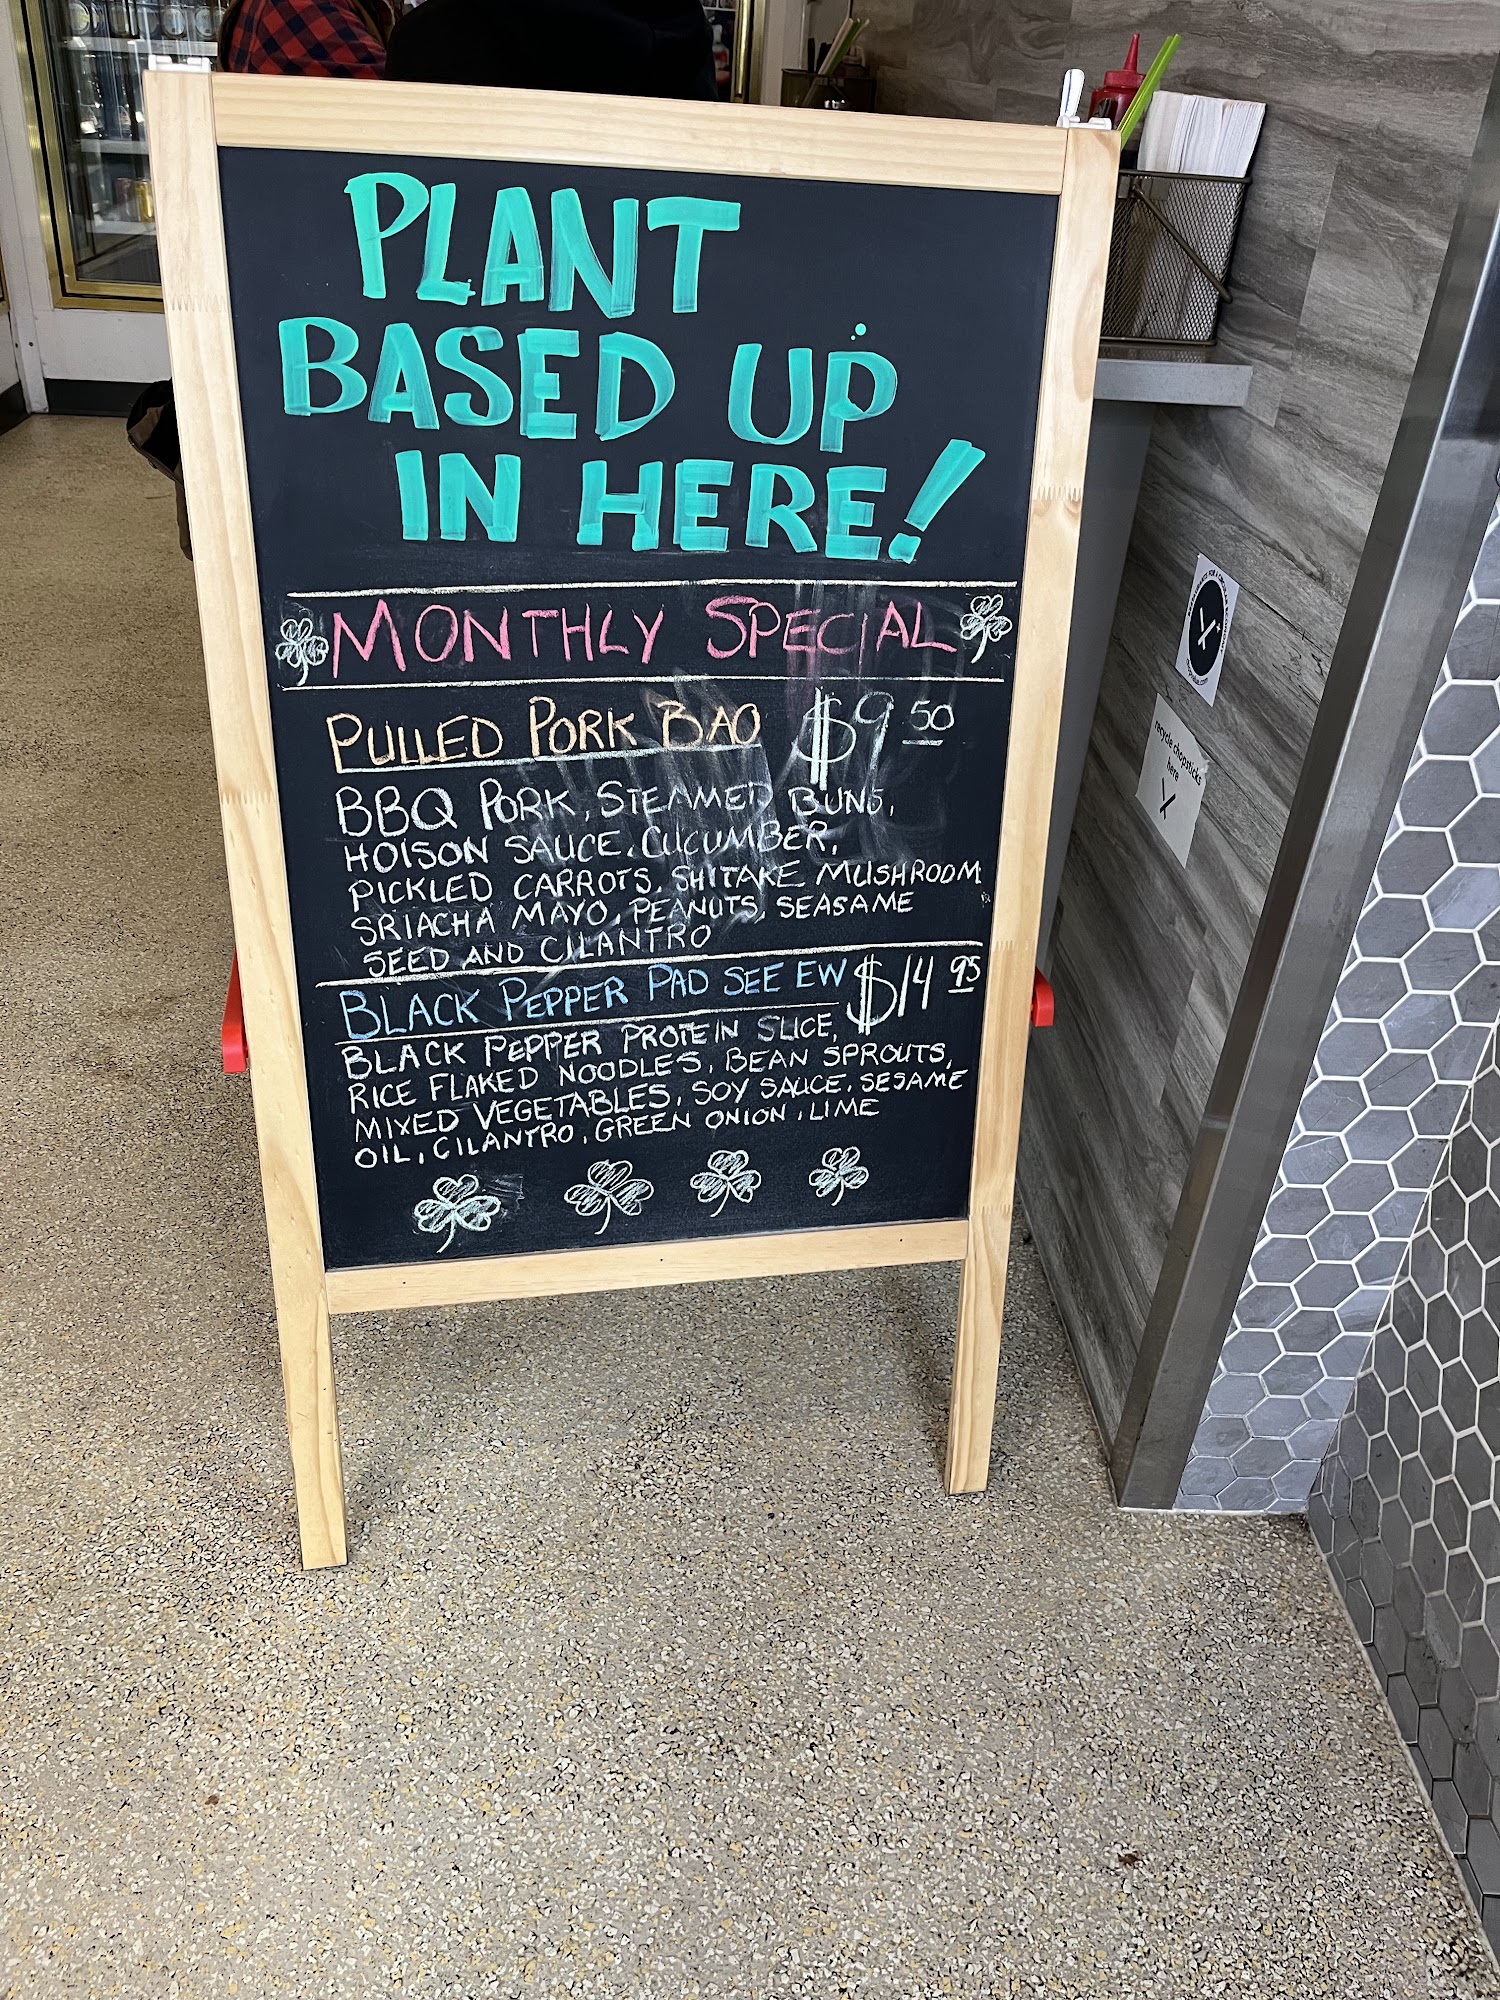 PLANT
BASED UP
IN HERE!
MONTHLY SPECIAL
PULLED PORK BAO $9.50
BBQ PORK, STEAMED BUNS,
HOISON SAUCE, CUCUMBER,
PICKLED CARROTS, SHITAKE MUSHROOM
SRIACHA MAYO, PEANUTS, SEASAME
SEED AND CILANTRO
BLACK PEPPER PAD SEE EW $14 95
BLACK PEPPER PROTEIN SLICE,
RICE FLAKED NOODLES, BEAN SPROUTS,
MIXED VEGETABLES, SOY SAUCE, SESAME
OIL, CILANTRO, GREEN ONION, LIME
recycle chopsticks
here